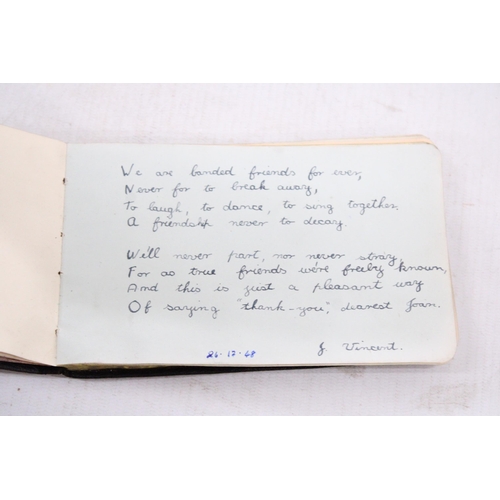 We are banded friends for ever,
Never for to break away,
To laugh, to dance, to sing together,
A friendship never to decay.
We'll never part, nor never stray,
For as true friends we're freely known,
And this is just a pleasant way
Of saying "thank-you", dearest Joan.
J Vincent.
26-12-48